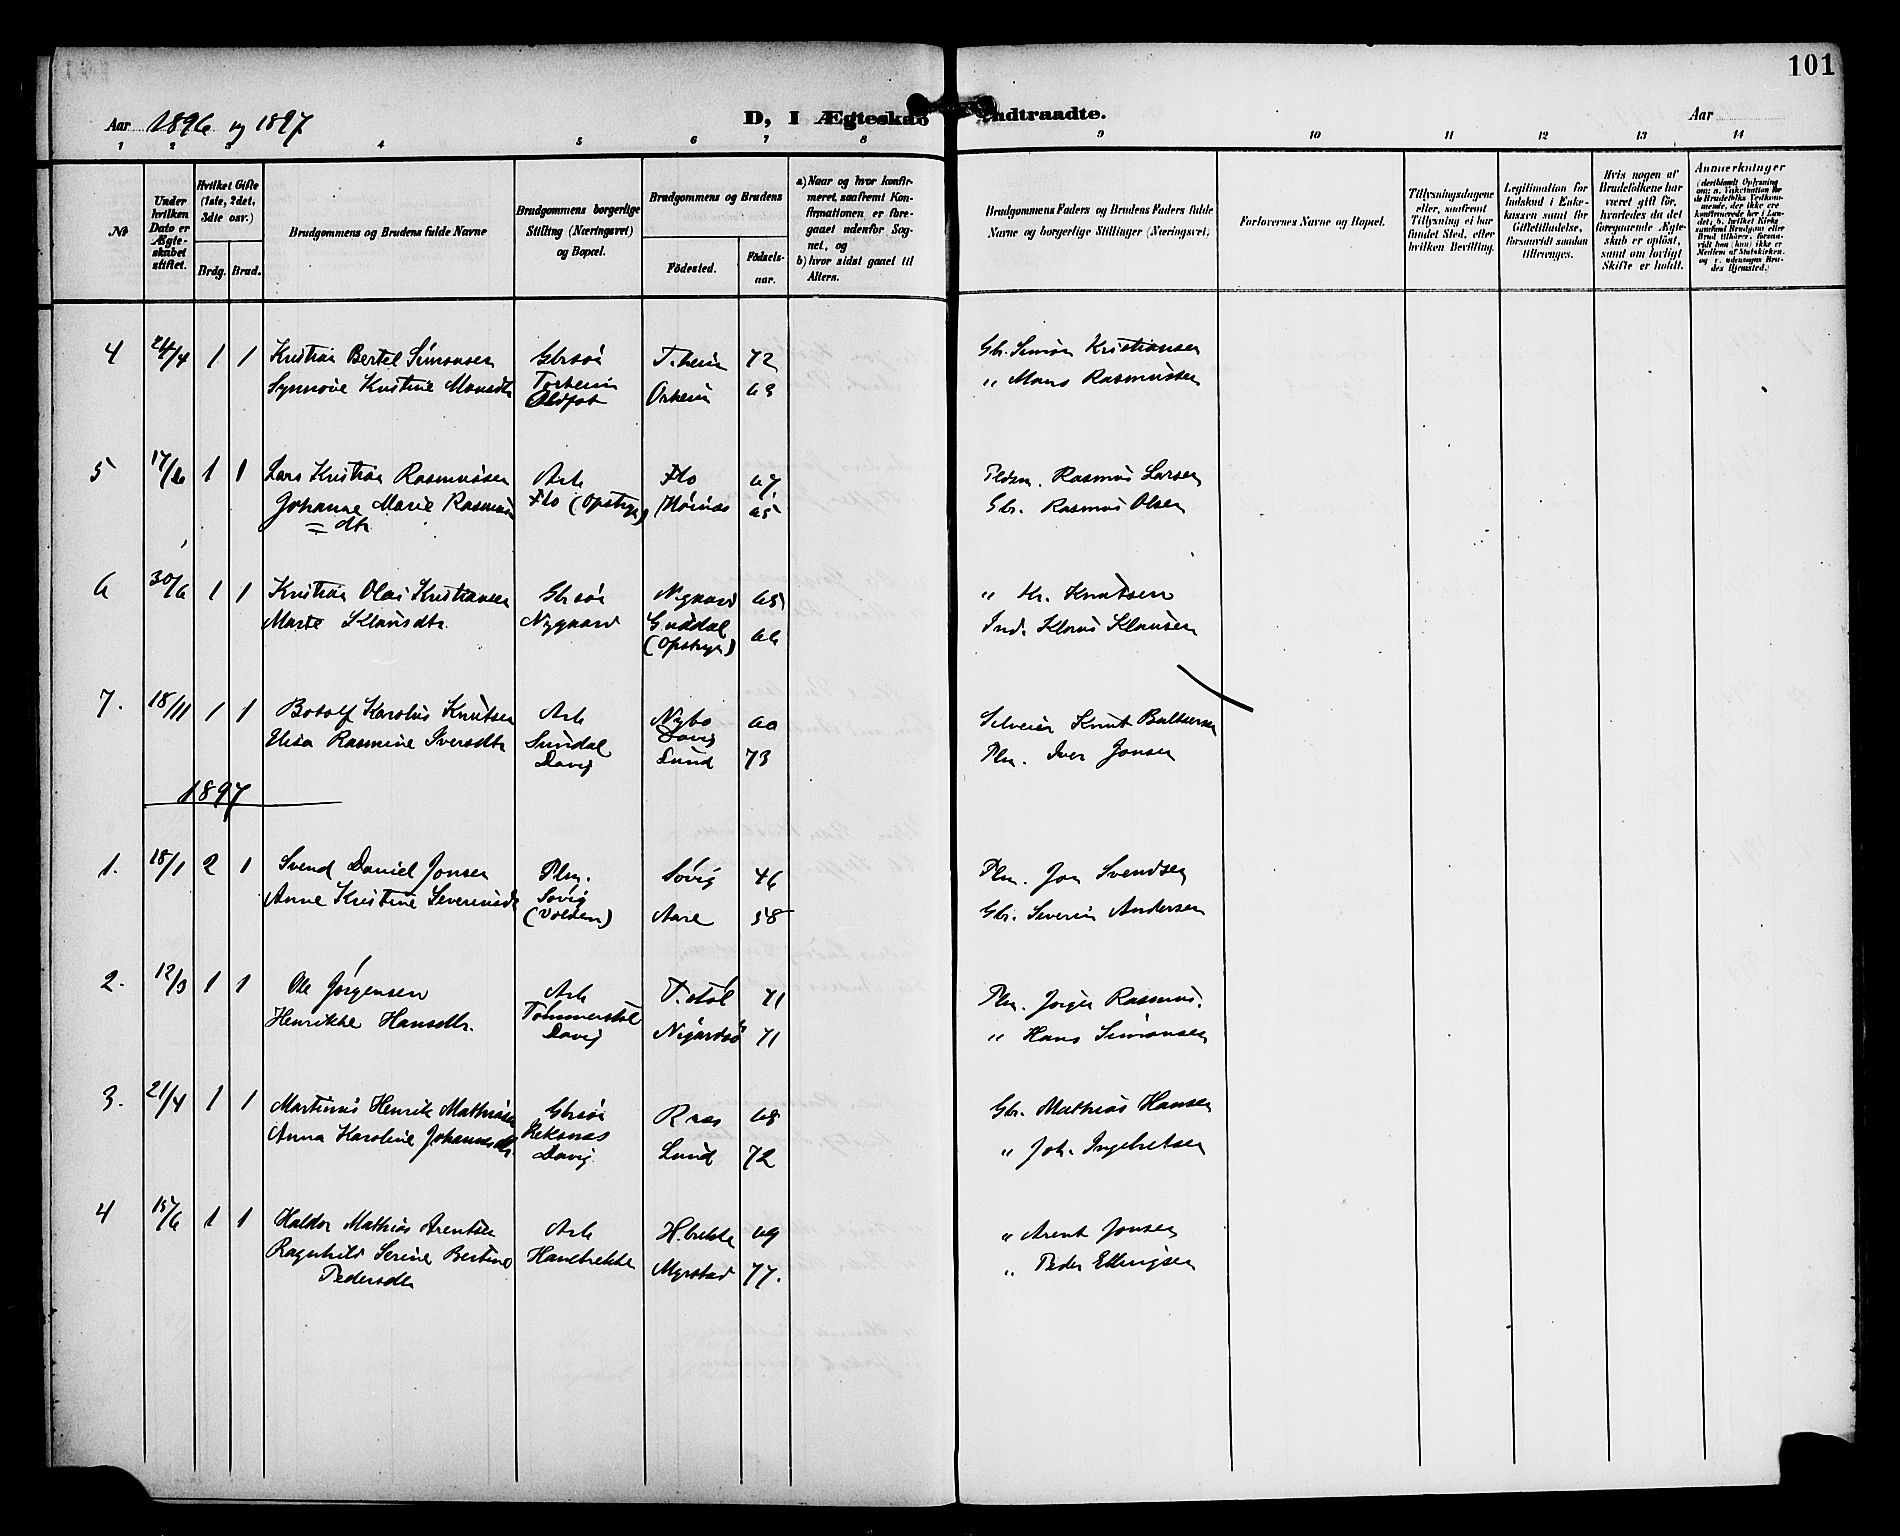 101
Aar 1896 og 1897 D, I Ægteskab Indtraadte. Aar
1 2 3 4 5 6 7 8 9 10 11 12 13 14
№
Under hvilken Dato er Ægteskabet stiftet.
Hvilket Gifte (1ste, 2det, 3die osv.)
Brdg. Brud.
Brudgommens og Brudens fulde Navne
Brudgommens borgerlige Stilling (Næringsvei) og Bopæl.
Brudgommens og Brudens
Födested.
Födselsaar.
a) Naar og hvor konfirmeret, saafremt Konfirmationen er foregaaet udenfor Sognet, og
b) hvor sidst gaaet til Alters.
Brudgommens Faders og Brudens Faders fulde Navne og borgerlige Stillinger (Næringsvei)
Forlovernes Navne og Bopæl.
Tillysningsdagene eller, saafremt Tillysning ei har fundet Sted, efter hvilken Bevilling.
Legitimation for Indskud i Enkekassen samt for Giftetilladelse, forsaavidt saadan tiltrænges.
Hvis nogen af Brudefolkene har været gift för, hvorledes da det foregaaende Ægteskab er oplöst, samt om lovligt Skifte er holdt.
Anmærkninger
4 24/4 1 1 Kristian Bertel Simonsen Gbrsøn T.heim 72 Gbr. Simon Kristiansen
Synnøve Kristine Monsdtr Torheim Orheim 63 " Mons Rasmussen
5 17/6 1 1 Lars Kristian Rasmussen Arb Flo 67 Pldsm. Rasmus Larsen
Johanne Marie Rasmus= Flo (Opstryn) Hornes 65 Gbr. Rasmus Olsen
dtr.
6 30/6 1 1 Kristian Olai Kristiansen Gbrsøn Nygaard 65 " Kr. Knutsen
Marte Klausdtr. Nygaard Guddal 66 Ind. Klaus Klausen
(Opstryn)
7. 18/11 1 1 Botolf Karolus Knutsen Arb Nybø 60 Selveier Knut Baltsersen
Elisa Rasmine Iversdtr Sundal Davig
Davig Lund 73 Plm. Iver Jonsen
1897
1. 18/1 2 1 Svend Daniel Jonsen Plm. Søvig 46 Plm. Jon Svendsen
Anne Kristine Severinsdtr Søvig
(Volden) Aare 58 Gbr. Severin Andersen
2. 12/3 1 1 Ole Jørgensen Arb T.støl 71 Plm. Jørgen Rasmus.
Henrikke Hansdtr. Tømmerstøl
Davig Nigardsø 71 " Hans Simonsen
3. 21/4 1 1 Martinus Henrik Mathiasen Gbrsøn Raas 68 Gbr. Mathias Hansen
Anna Karoline Johannesdtr. Reksnes
Davig Lund 72 " Joh. Ingebretsen
4 15/6 1 1 Haldor Mathias Arentsen Arb H.brekke 69 " Arent Jonsen
Ragnhild Serine Bertine Havebrekke Myrstad 77. " Peder Ellingsen
Pedersdtr